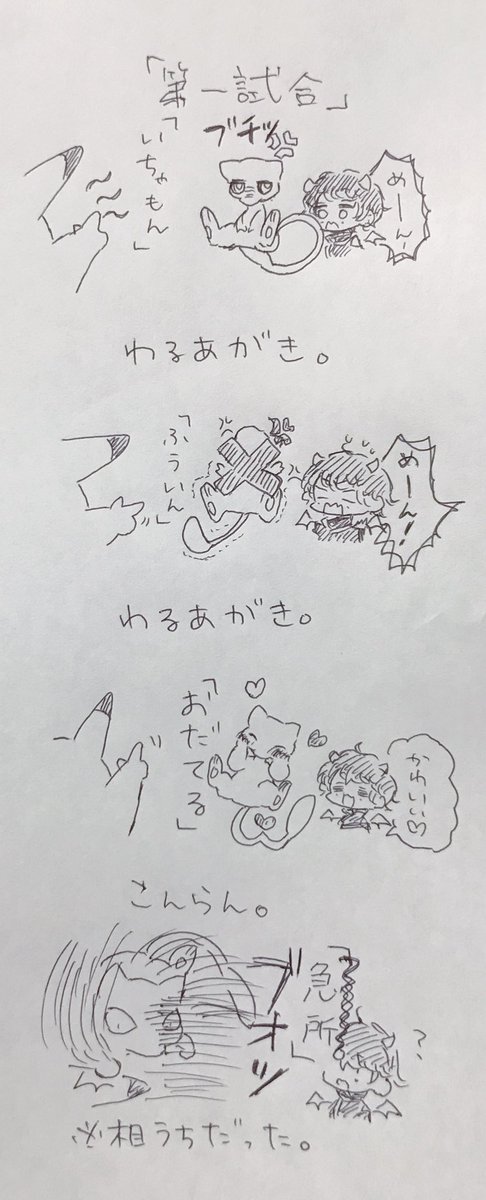 「第一試合」
ブチッ
「いちゃもん」
めーん!
わるあがき。
「ふういん」
めーん!
わるあがき。
「おだてる」
かわいい♡
こんらん。
ブオッ
「急所」
?
※相うちだった。